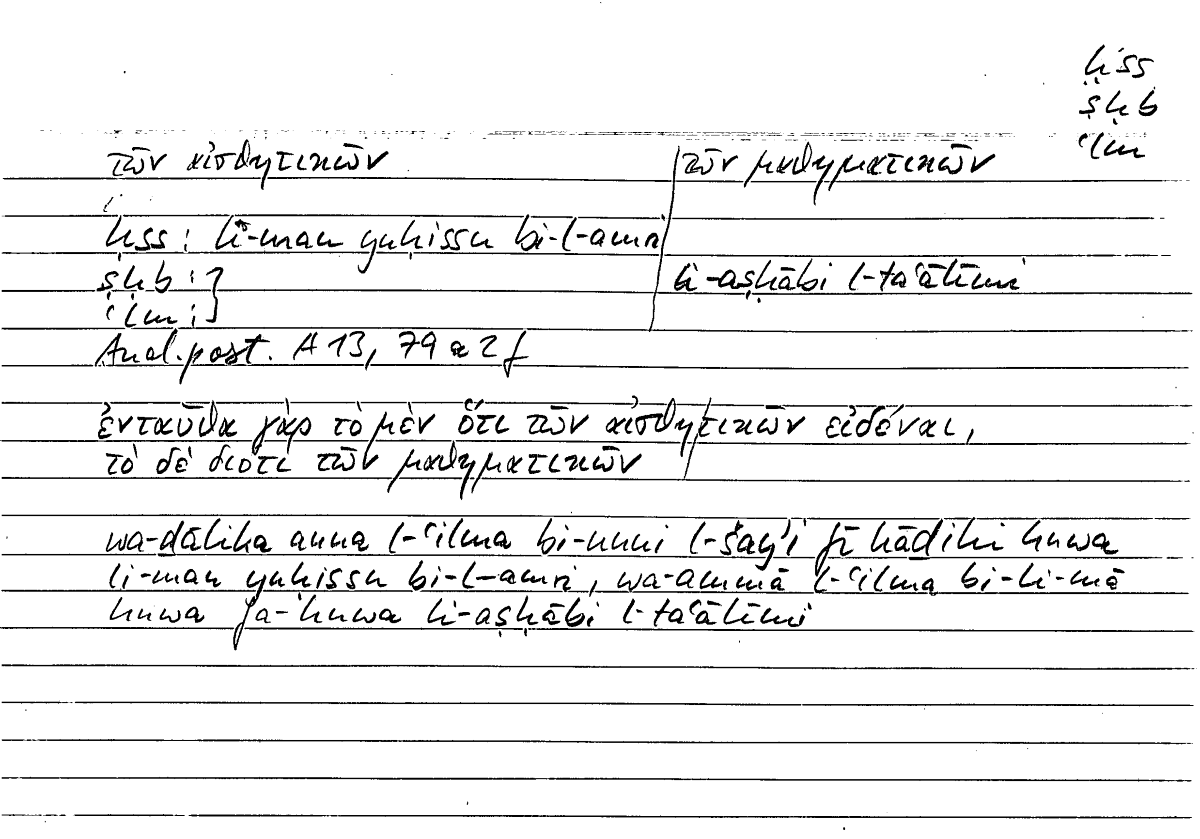 ḥss
ṣḥb
ʿlm
τῶν αἰσθητικῶν | τῶν μαθηματικῶν
ḥss : li-man yuḥissu bi-l-amri
ṣḥb : } li-aṣḥābi l-taʿālīmi
ʿlm : }
Anal. post. A 13, 79 a 2 f
ἐνταῦθα γὰρ τὸ μὲν ὅτι τῶν αἰσθητικῶν εἰδέναι,
τὸ δὲ διότι τῶν μαθηματικῶν
wa-ḏālika anna l-ʿilma bi-anna l-šayʾi fī hāḏihi huwa
li-man yuḥissu bi-l-amri, wa-ammā l-ʿilma bi-li-mā
huwa fa-huwa li-aṣḥābi l-taʿālīmi